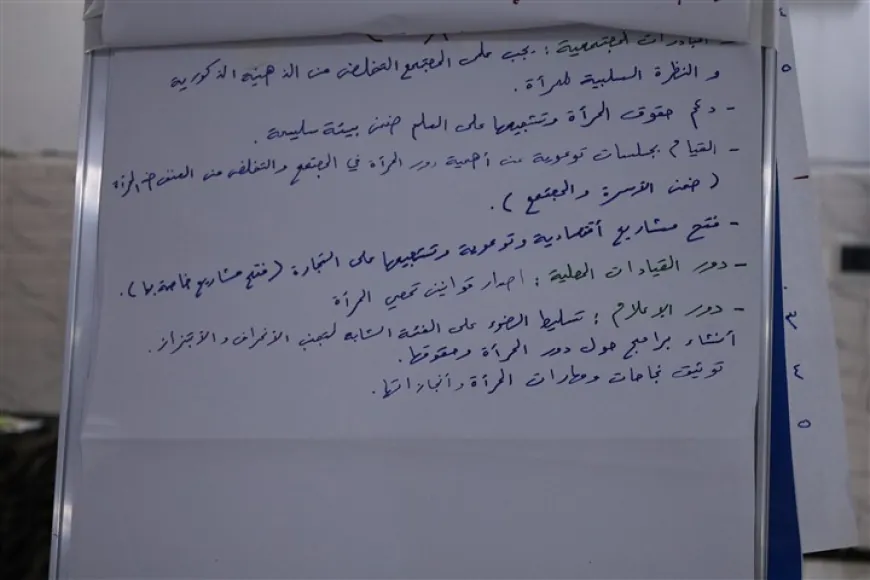 - المبادرات المجتمعية : يجب على المجتمع التخلص من الذهنية الذكورية
و النظرة السلبية للمرأة .
- دعم حقوق المرأة وتشجيعها على العلم ضمن بيئة سليمة .
- القيام بجلسات توعوية عن أهمية دور المرأة في المجتمع والتخلص من العنف ضد المرأة
( ضمن الأسرة والمجتمع ) .
- فتح مشاريع أقتصادية وتوعوية وتشجيعها على التجارة ( فتح مشاريع خاصة بها ) .
- دور القيادات المحلية : اصدار قوانين تحمي المرأة
- دور الاعلام : تسليط الضوء على الفئة الشابه لتجنب الأنحراف والأبتزاز .
أنشاء برامج حول دور المرأة وحقوقها .
توثيق نجاحات ومهارات المرأة وأنجازاتها .
٤
٥
٣
٤
٥